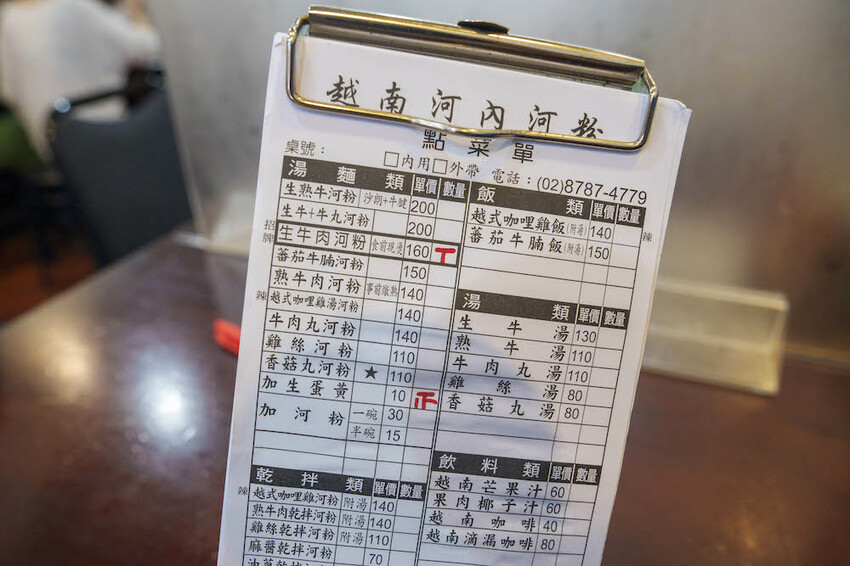 越南河內河粉
點菜單
桌號： □內用□外帶 電話：(02)8787-4779
湯麵類 單價 數量
生熟牛河粉 沙朗+牛腱 200
生牛+牛丸河粉 200
招牌 生牛肉河粉 食前現燙 160 丅
番茄牛腩河粉 150
熟牛肉河粉 140
辣 越式咖哩雞湯河粉 140
牛肉丸河粉 140
雞絲河粉 110
香菇丸河粉 ★ 110
加生蛋黃 10 正
加河粉 一碗 30
半碗 15
乾拌類 單價 數量
辣 越式咖哩雞河粉 附湯 140
熟牛肉乾拌河粉 附湯 140
雞絲乾拌河粉 附湯 110
麻醬乾拌河粉 70
飯類 單價 數量
越式咖哩雞飯(附湯) 140 辣
番茄牛腩飯(附湯) 150
湯類 單價 數量
生牛湯 130
熟牛湯 110
牛肉丸湯 110
雞絲湯 80
香菇丸湯 80
飲料類 單價 數量
越南芒果汁 60
果肉椰子汁 60
越南咖啡 40
越南滴漏咖啡 80